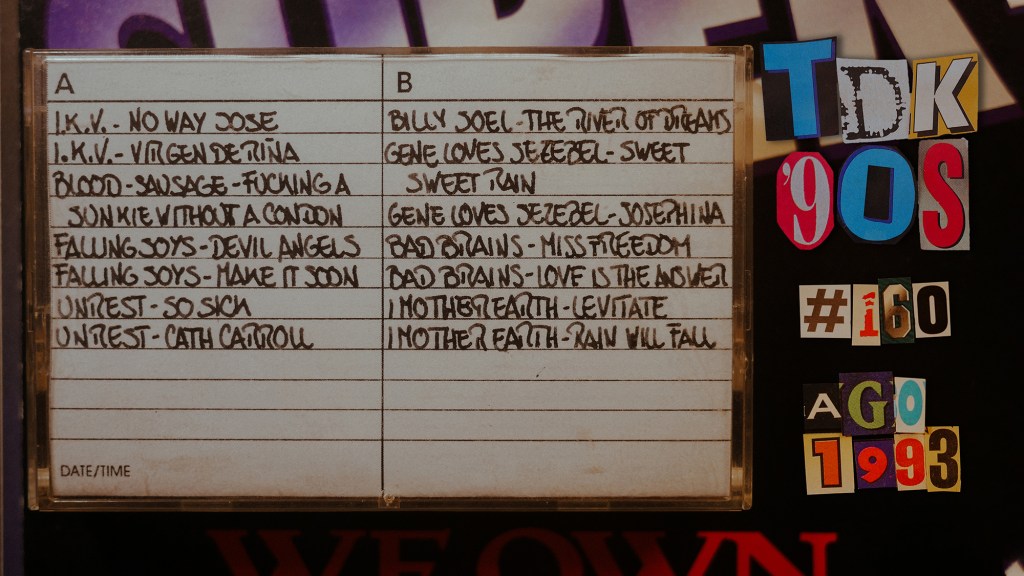 A
I.K.V. - NO WAY JOSE
I.K.V. - VIRGEN DE RIÑA
BLOOD - SAUSAGE - FUCKING A
JUNKIE WITHOUT A CONDON
FALLING JOYS - DEVIL ANGELS
FALLING JOYS - MAKE IT SOON
UNREST - SO SICK
UNREST - CATH CARROLL
DATE/TIME
B
BILLY JOEL - THE RIVER OF DREAMS
GENE LOVES JEZEBEL - SWEET
SWEET RAIN
GENE LOVES JEZEBEL - JOSEPHINA
BAD BRAINS - MISS FREEDOM
BAD BRAINS - LOVE IS THE ANSWER
I MOTHER EARTH - LEVITATE
I MOTHER EARTH - RAIN WILL FALL
TDK
'90S
#160
AGO
1993
WE OWN